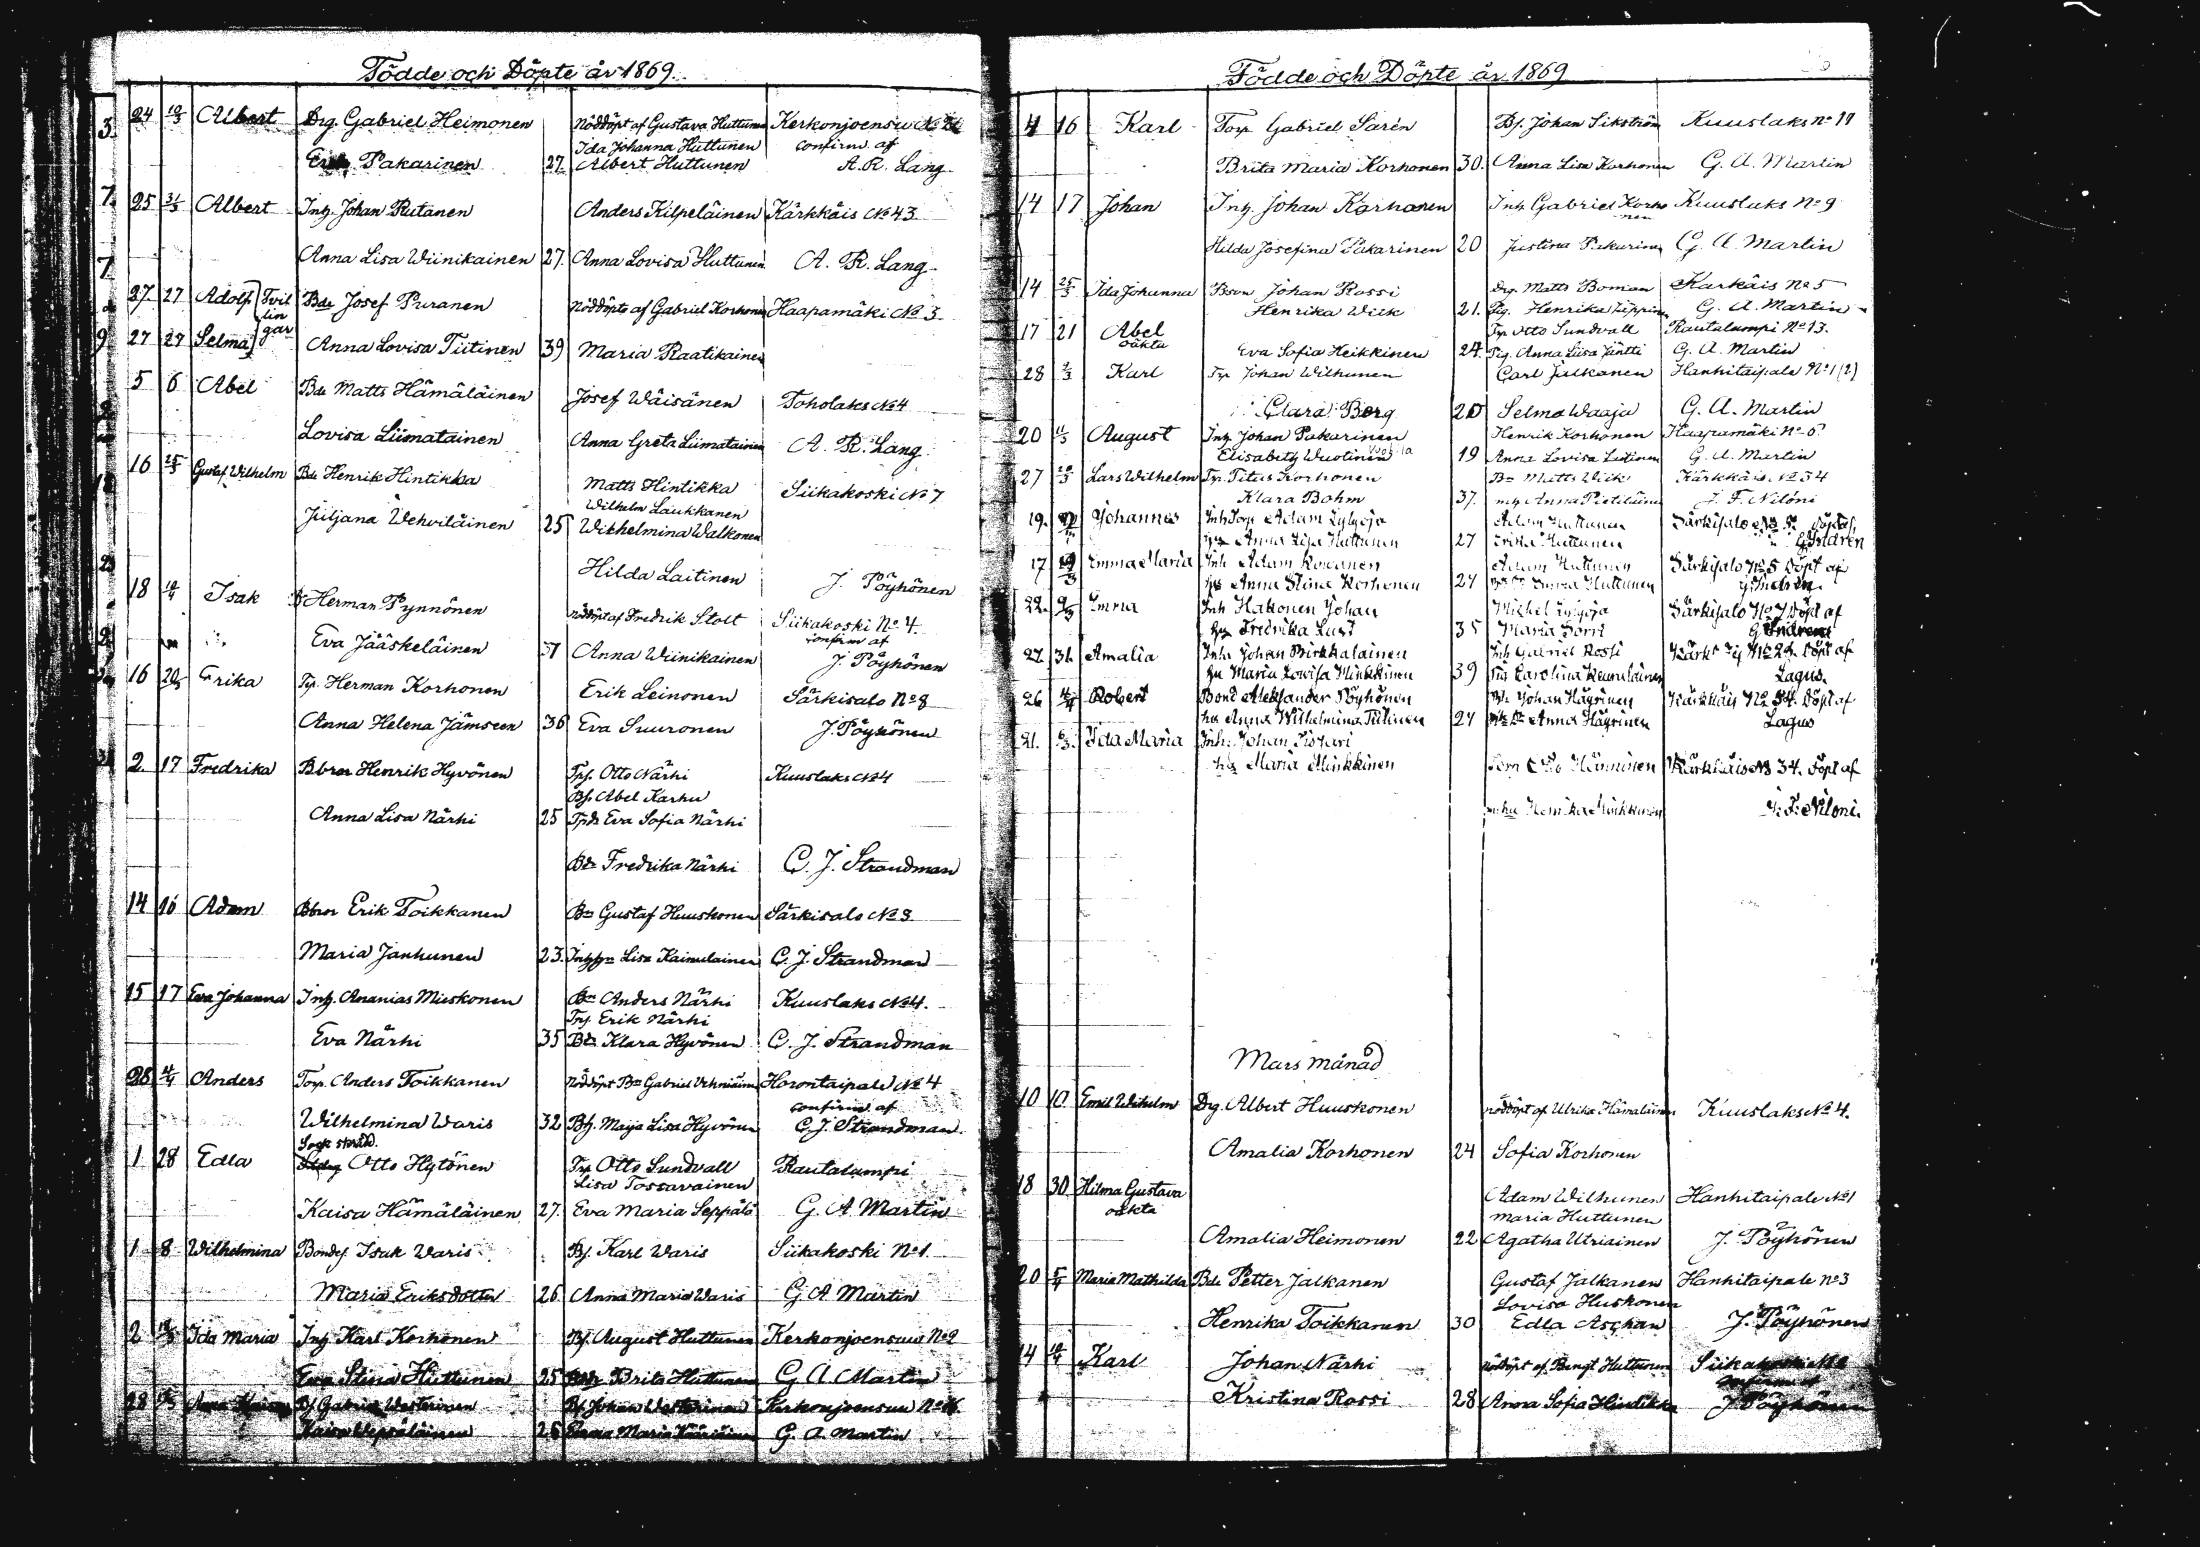 Födde och Döpte år 1869.
3.
24 10/3 Albert Drg. Gabriel Heimonen Nöddöpt af Gustava Huttunen Kerkonjoensuu
Ida Johanna Huttunen confirm. af
Pakarinen 27. Albert Huttunen A. R. Lang
7. 25 31/3 Albert Inh. Johan Rutanen Anders Kilpeläinen Kärkkäis No 43
Anna Lisa Wiinikainen 27. Anna Lovisa Huttunen A. R. Lang
7
27. 27 Adolf Tvil Bde Josef Puranen Nöddöpte af Gabriel Korhonen Haapamäki No 3
lin
27 27 Selma gar Anna Lovisa Tiitinen 39 Maria Raatikainen
5 6 Abel Bde Matts Hämäläinen Josef Wäisänen Toholaks No 4
Lovisa Liimatainen Anna Greta Liimatainen A. R. Lang
16 25/3 Gustaf Wilhelm Bde Henrik Hintikka Matts Hintikka Siikakoski No 7
Wilhelm Laukkanen
Juljana Wehviläinen 25 Wilhelmina Walkonen
Hilda Laitinen J. Pöyhönen
18 Isak Herman Pynnönen nöddöpt af Fredrik Stolt Siikakoski No 4.
confirm af
Eva Jääskeläinen 37 Anna Wiinikainen J. Pöyhönen
16 20/3 Erika Tp. Herman Korhonen Erik Leinonen Särkisalo No 8
Anna Helena Jämseen 36 Eva Suuronen J. Pöyhönen
2. 17 Fredrika Bbror Henrik Hyvönen Tpf. Otto Närhi Kuuslaks No 4
Bf. Abel Karhu
Anna Lisa Närhi 25 Tpdr Eva Sofia Närhi
Bdr Fredrika Närhi C. J. Strandman
14 16 Adam Bbror Erik Toikkanen Bm Gustaf Huuskonen Särkisalo No 3
Maria Janhunen 23. Lisa Kainulainen C. J. Strandman
15 17 Eva Johanna Inh. Ananias Mieskonen Bm Anders Närhi Kuuslaks No 4.
Tpf. Erik Närhi
Eva Närhi 35 Klara Hyvönen C. J. Strandman
28 4/4 Anders Torp. Anders Toikkanen nöddöpt Bm Gabriel Horontaipale No 4
confirm. af
Wilhelmina Waris 32 Maija Lisa Hyvönen C. J. Strandman
1 28 Edla Otto Hytönen Tp Otto Sundvall Rautalampi
Lisa Tossavainen
Kaisa Hämäläinen 27. Eva Maria Seppälä G. A Martin
1 8 Wilhelmina Bondes. Isak Waris Bf. Karl Waris Siikakoski No 1.
Maria Eriksdotter 26 Anna Maria Waris G A Martin
2 Ida Maria Inh Karl Korhonen Bf. August Huttunen Kerkonjoensuu No 9
Eva Stina Huttunen 25 Brita Huttunen G A Martin
28 Bf Gabriel Westerinen Bf Johan Westerinen Kerkonjoensuu No 16
26 Maria G. A. Martin
Födde och Döpte år 1869
4 16 Karl Torp Gabriel Sarén Bf. Johan Sikström Kuuslaks no 17
Brita Maria Korhonen 30. Anna Lisa Korhonen G. A. Martin
14 17 Johan Inh. Johan Korhonen Inh Gabriel Korho Kuuslaks No 9
nen
Hilda Josefina Pakarinen 20 Justina Pakarinen G. A. Martin
14 25/3 Ida Johanna Bson Johan Rossi Drg. Matts Boman Karkäis No 5
Henrika Wiik 21. Pig. Henrika G. A. Martin
17 21 Abel Tp Otto Sundvall Rautalampi No 13.
oäkta Eva Sofia Heikkinen 24. Pig. Anna Liisa Jäntti G. A. Martin
28 2/3 Karl Tp Johan Wilhunen Carl Julkanen Hanhitaipale No 1 (2)
Clara Borg 20 Selma Waaja G. A. Martin
20 11/3 August Inh Johan Pakarinen Henrik Korhonen Haapamäki No 6
Elisabeth Wuotinen 19 Anna Lovisa G. A. Martin
27 Lars Wilhelm Tp. Titus Korhonen Bn Matts Wiik Kärkkäis No 34
Klara Bohm 37. Anna J. F. Niloni
19. Johannes Inh Torp Adam Adam Huttunen Särkisalo No 5. döpt af
Anna Lisa Huttunen 27 Erika Huttunen G Indren
17 Emma Maria Inh Adam Adam Huttunen Särkisalo No 5 Döpt af
Anna Stina Korhonen 24 Emma Huttunen G. Indren.
22. Emma Inh Hakonen Johan Michel Särkisalo No 7 Döpt af
Fredrika Lust 35 Maria Sorri G Indren
22. 31. Amalia Inh. Johan Birkkalainen Inh Gabriel Rossi No 29. Döpt af
Maria Lowisa Minkkinen 39 Pig Carolina Lagus.
26 4/4 Robert Bond Aleksander Pöyhönen Johan Häyrinen Kärkkäis No 34. Döpt af
Anna Wilhelmina Tiitinen 24 Anna Häyrinen Lagus
21. Ida Maria Inh. Johan
Maria Minkkinen Otto Hänninen Kärkkäis No 34. Döpt af
Henrika Minkkinen J. F. Niloni.
Mars månad
10 10 Emil Wilhelm Drg. Albert Huuskonen nöddöpt af Ulrika Hämäläinen Kuuslaks No 4.
Amalia Korhonen 24 Sofia Korhonen
18 30 Hilma Gustava Adam Wilhunen Hanhitaipale No 1
oäkta Maria Huttunen
Amalia Heimonen 22 Agatha Utriainen J. Pöyhönen
20 5/4 Maria Mathilda Bde Petter Jalkanen Gustaf Jalkanen Hanhitaipale no 3
Lovisa Huskonen
Henrika Toikkanen 30 Edla Aschan J. Pöyhönen
14 Karl Johan Närhi nöddöpt af Bengt Huttunen
Kristina Rossi 28 Anna Sofia Hintikka J Pöyhönen